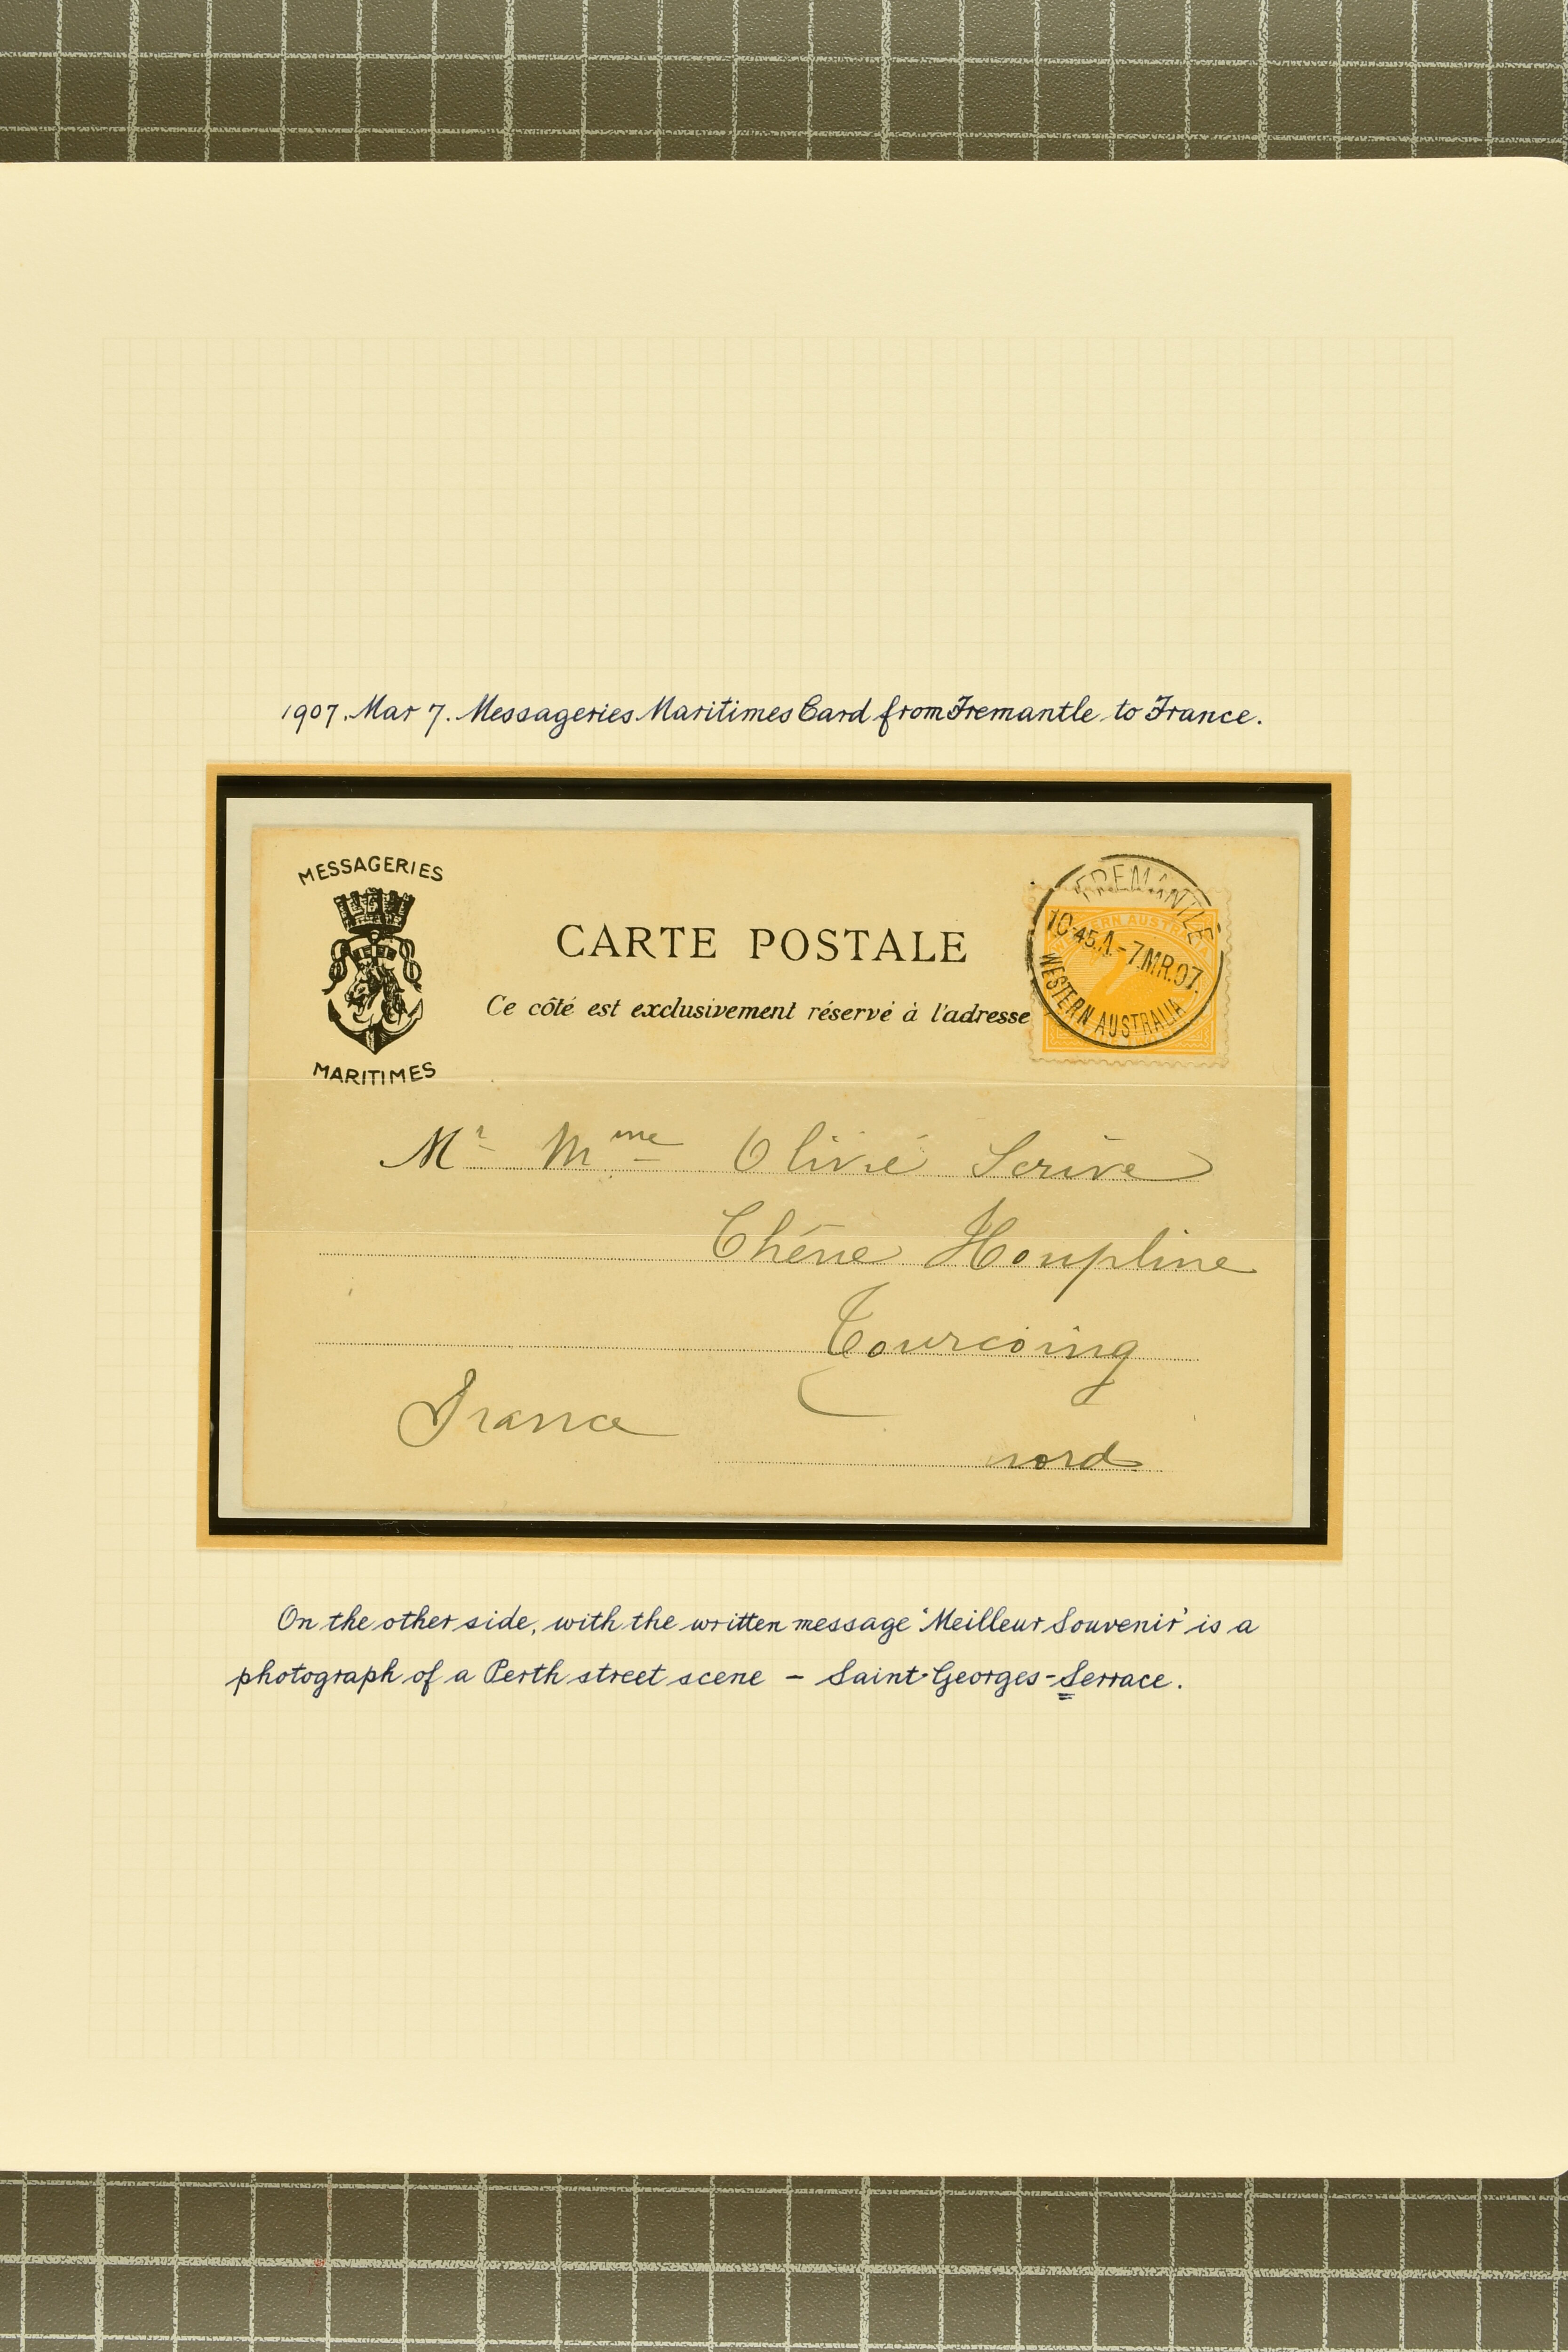 1907. Mar 7. Messageries Maritimes Card from Fremantle to France.
MESSAGERIES
MARITIMES
CARTE POSTALE
Ce côté est exclusivement réservé à l'adresse
FREMANTLE
10-45.A-7.MR.07.
WESTERN AUSTRALIA
Mr Mme Olivié Scrive
Chêne Houpline
Tourcoing
France
nord
On the other side, with the written message 'Meilleur Souvenir' is a
photograph of a Perth street scene – Saint-Georges-Serrace.